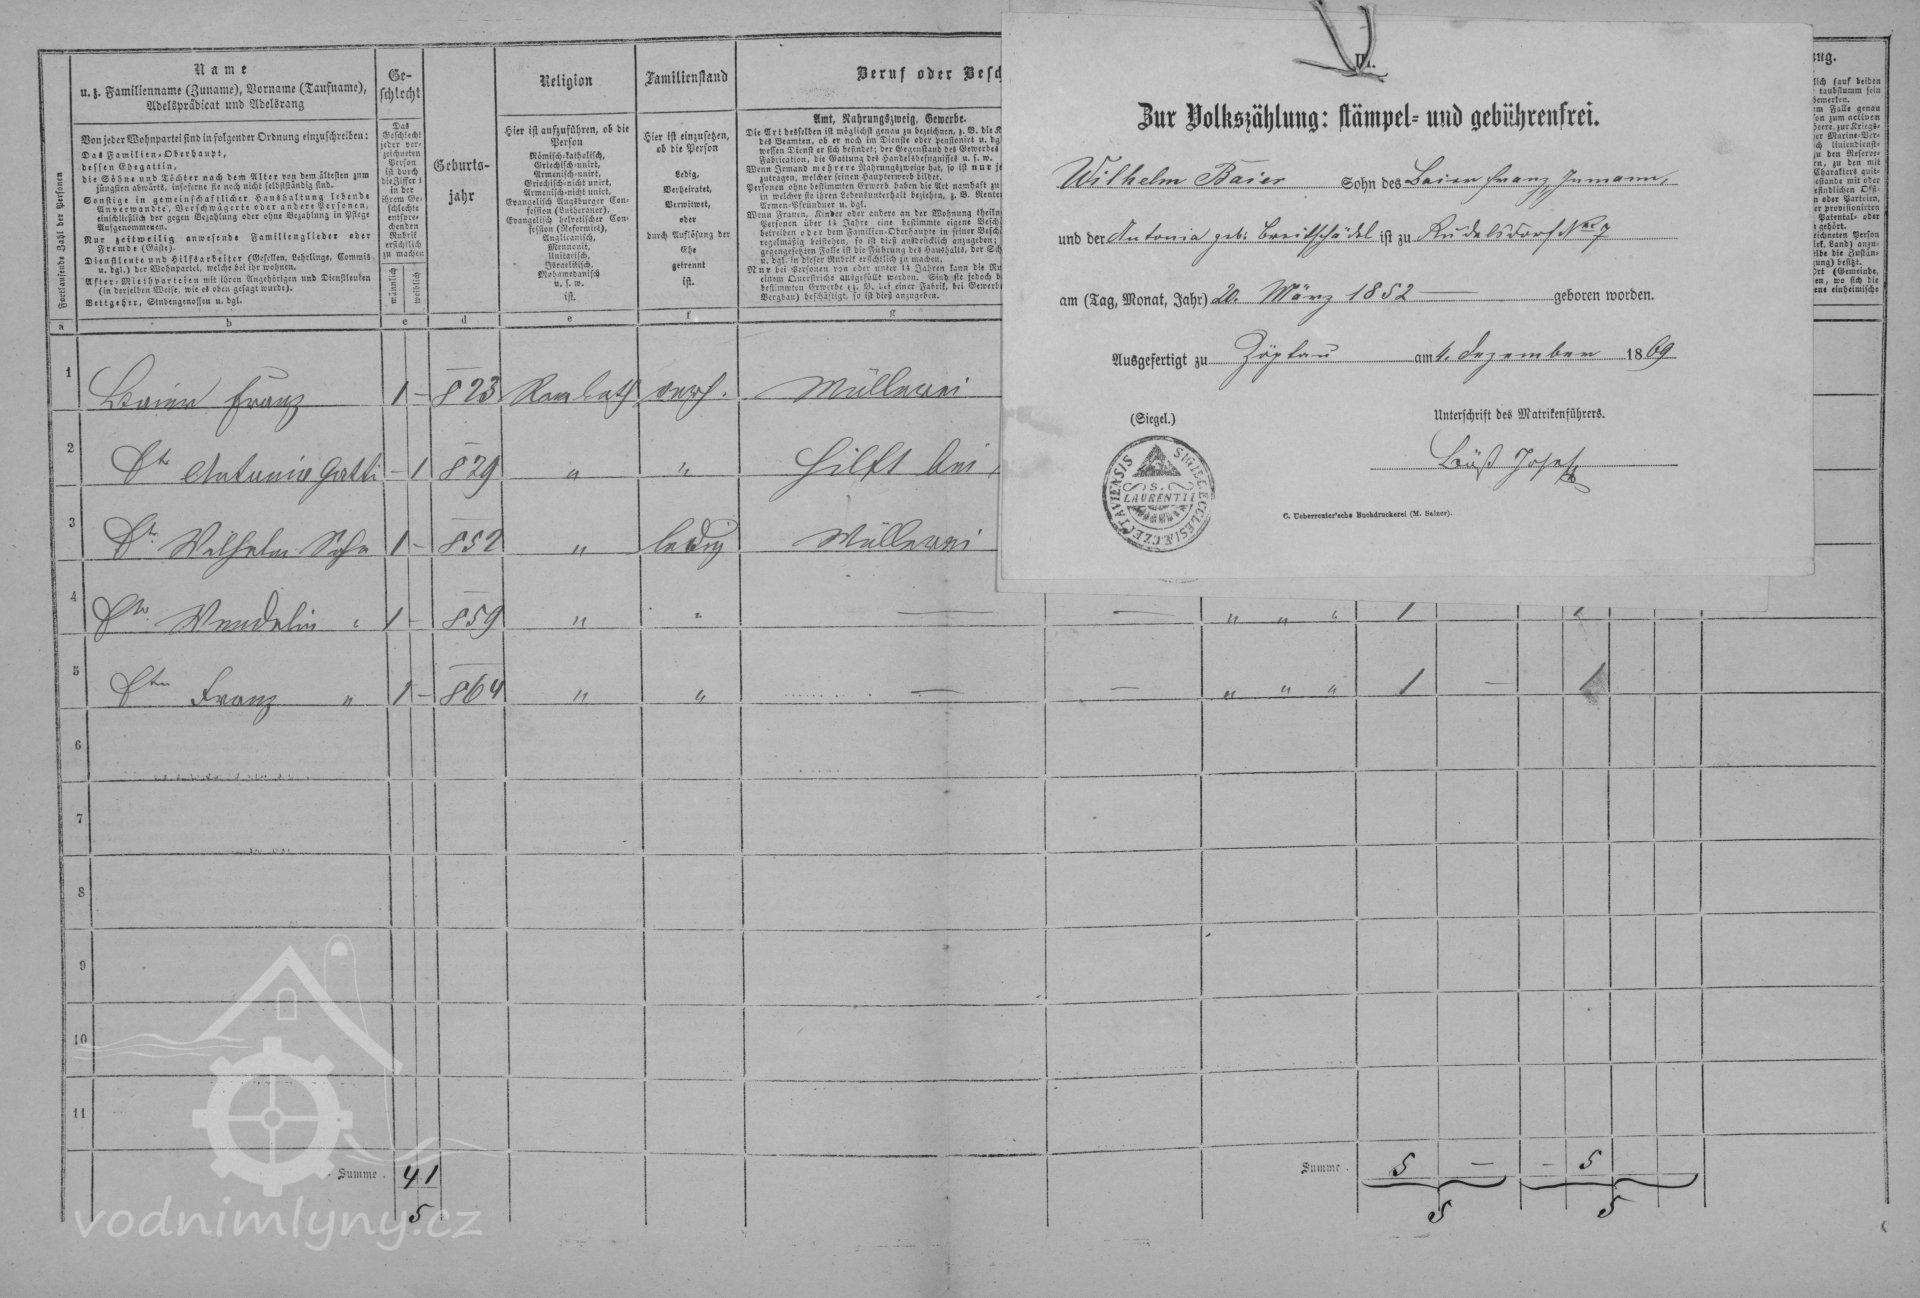 Name
u. z. Familienname (Zuname), Vorname (Taufname),
Adelsprädicat und Adelsrang
Von jeder Wohnpartei sind in folgender Ordnung einzuschreiben:
Das Familien-Oberhaupt,
dessen Ehegattin,
die Söhne und Töchter nach dem Alter von dem ältesten zum
jüngsten abwärts, insoferne sie noch nicht selbstständig sind.
Sonstige in gemeinschaftlicher Haushaltung lebende
Anverwandte, Verschwägerte oder andere Personen,
einschließlich der gegen Bezahlung oder ohne Bezahlung in Pflege
Aufgenommenen.
Nur zeitweilig anwesende Familienglieder oder
Fremde (Gäste).
Dienstleute und Hilfsarbeiter (Gesellen, Lehrlinge, Commis
u. dgl.) der Wohnpartei, welche bei ihr wohnen.
After-Miethparteien mit ihren Angehörigen und Dienstleuten
(in derselben Weise, wie es oben gesagt wurde).
Bettgeher, Stubengenossen u. dgl.
Fortlaufende Zahl der Personen
Ge-
schlecht
Das
Geschlecht
jeder ver-
zeichneten
Person
ist durch
die Ziffer 1
in der
ihrem Ge-
schlechte
entspre-
chenden
Rubrik
ersichtlich
zu machen
männlich
weiblich
Geburts-
jahr
Religion
Hier ist aufzuführen, ob die
Person
Römisch-katholisch,
Griechisch-unirt,
Armenisch-unirt,
Griechisch-nicht unirt,
Armenisch-nicht unirt,
Evangelisch Augsburger Con-
fession (Lutheraner),
Evangelisch helvetischer Con-
fession (Reformirt),
Anglicanisch,
Mennonit,
Unitarisch,
Israelitisch,
Mohamedanisch
u. s. w.
ist.
Familienstand
Hier ist einzusetzen,
ob die Person
ledig,
verheiratet,
verwitwet,
oder
durch Auflösung der
Ehe
getrennt
ist.
Beruf oder Besch
Amt, Nahrungszweig, Gewerbe.
a b c d e f g
1 Baier Franz 1 – 823 Röm kath verh. Müllerei
2 Dto Antonia Gatti – 1 829 " " Hilft bei
3 Dto Wilhelm Sohn 1 – 852 " ledig Müllerei
4 Dto Wendelin " 1 – 859 " " — — " " " 1 1
5 Dto Franz " 1 – 864 " " — — " " " 1 – 1
6
7
8
9
10
11
Summe . 4 1
5
Summe . 5 – – 5
5 5
Zur Volkszählung: stämpel- und gebührenfrei.
Wilhelm Baier Sohn des Baier Franz Inmann,
und der Antonia geb: Breitschädel ist zu Rudelsdorf Nro 7
am (Tag, Monat, Jahr) 20. März 1852 geboren worden.
Ausgefertigt zu Zöptau am 4. Dezember 1869
(Siegel.) Unterschrift des Matrikenführers.
Josef
SIGIL. ECCLESIÆ CZEPTAVIENSIS
S.
LAURENTII
C. Ueberreuter'sche Buchdruckerei (M. Salzer).
vodnimlyny.cz